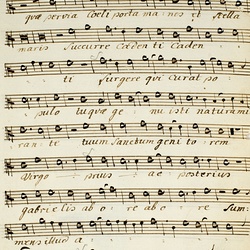 quæ pervia Coeli porta ma nes et stella
maris Succurre Cadenti Caden
ti surgere qui curat po
pulo tu quæ ge nuisti naturami
ran te tuum Sanctum geni to rem
Virgo prius ac posterius
gabrie lis ab o re ab o re Sum
mens illud a